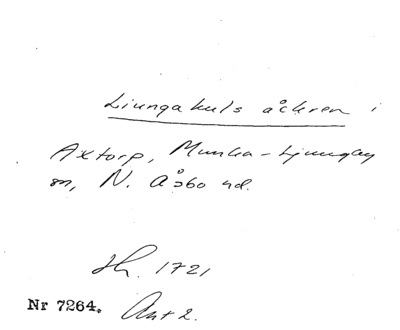 Ljungakuls åckren i
Axtorp, Munka-Ljungby
sn, N. Åsbo hd.
Jb. 1721
Nr 7264. Ant 2.